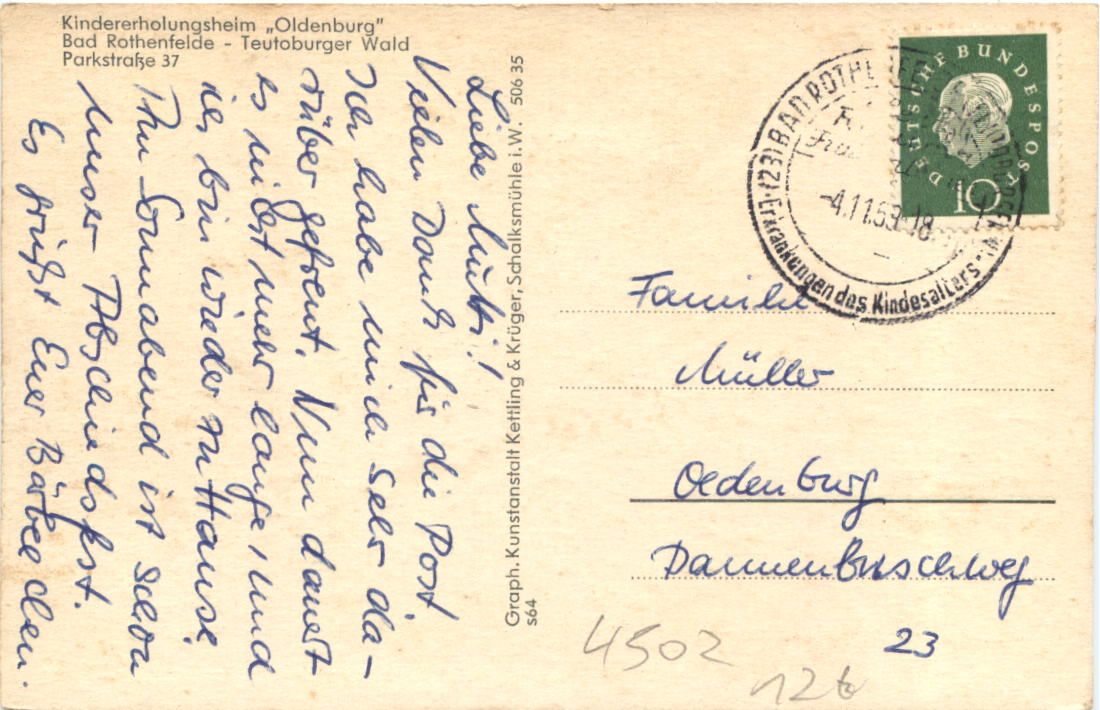 Kindererholungsheim „Oldenburg"
Bad Rothenfelde - Teutoburger Wald
Parkstraße 37
Liebe Mutti!
Vielen Dank für die Post.
Ich habe mich sehr da-
rüber gefreut. Nun dauert
es nicht mehr lange, und
ich bin wieder zu Hause.
Am Sonnabend ist schon
unser Abschiedsfest.
Es grüßt Euer Bärbelchen.
Graph. Kunstanstalt Kettling & Krüger, Schalksmühle i.W. 506 35
s64
DEUTSCHE BUNDESPOST
10
(23) BAD ROTHENFELDE
-4.11.59-18
Erkrankungen des Kindesalters
Familie
Müller
Oldenburg
Dannenbuschweg
23
4502